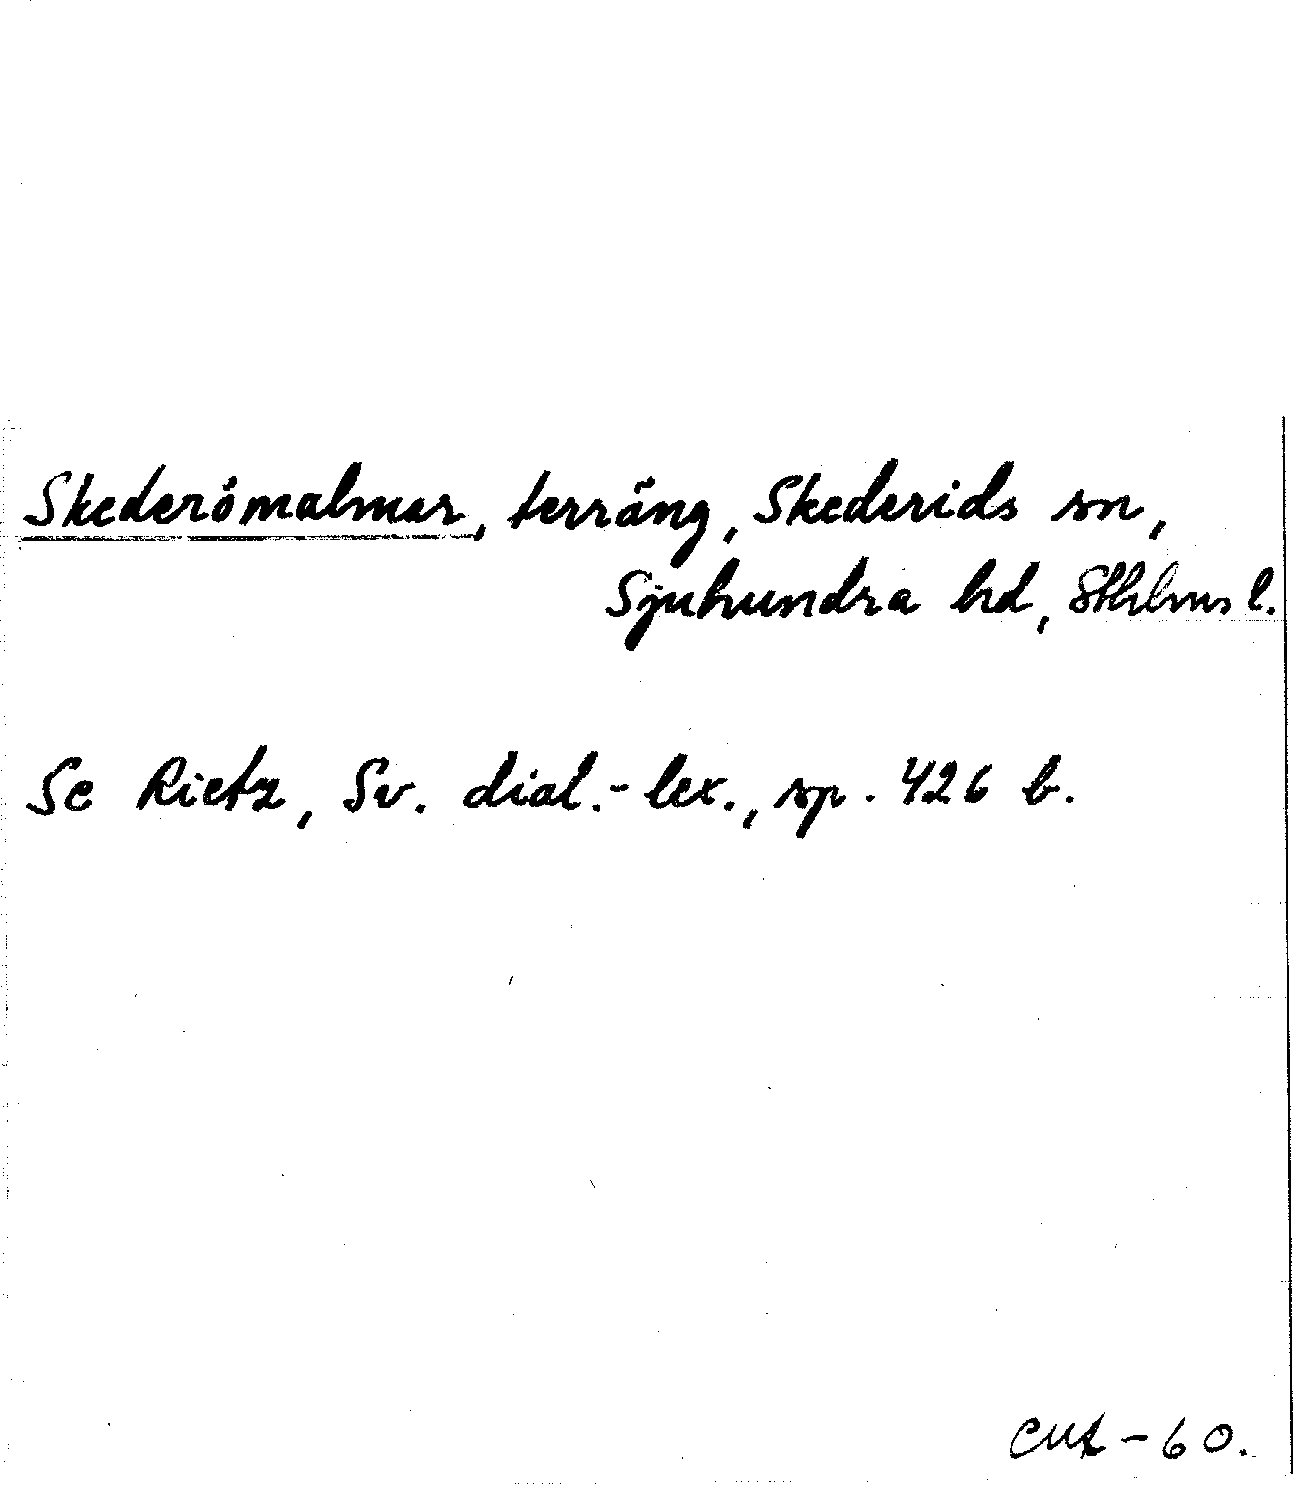 Skederömalmar, terräng, Skederids sn,
Sjuhundra hd, Sthlms l.
Se Rietz, Sv. dial.-lex., sp. 426 b.
CUL-60.